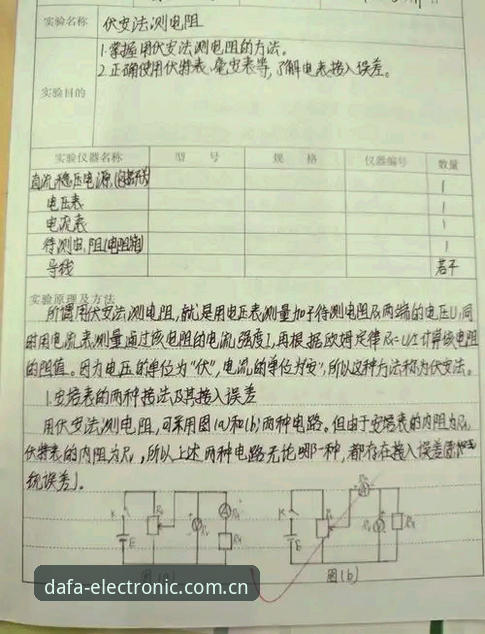 实验名称 伏安法测电阻
1.掌握用伏安法测电阻的方法。
2.正确使用伏特表、毫安表等,了解电表接入误差。
实验目的
实验仪器名称 型 号 规 格 仪器编号 数量
直流稳压电源 1
电压表 1
电流表 1
待测电阻(电阻箱) 1
导线 若干
实验原理及方法
所谓用伏安法测电阻,就是用电压表测量加于待测电阻Rx两端的电压U,同
时用电流表测量通过该电阻的电流强度I,再根据欧姆定律Rx=U/I计算该电阻
的阻值。因为电压的单位为"伏",电流的单位为"安",所以这种方法称为伏安法。
1.安培表的两种接法及其接入误差
用伏安法测电阻,可采用图(a)和(b)两种电路。但由于安培表的内阻为
伏特表的内阻为 ,所以上述两种电路无论哪一种,都存在接入误差
统误差)。
K E
K E
图(a) 图(b)
dafa-electronic.com.cn